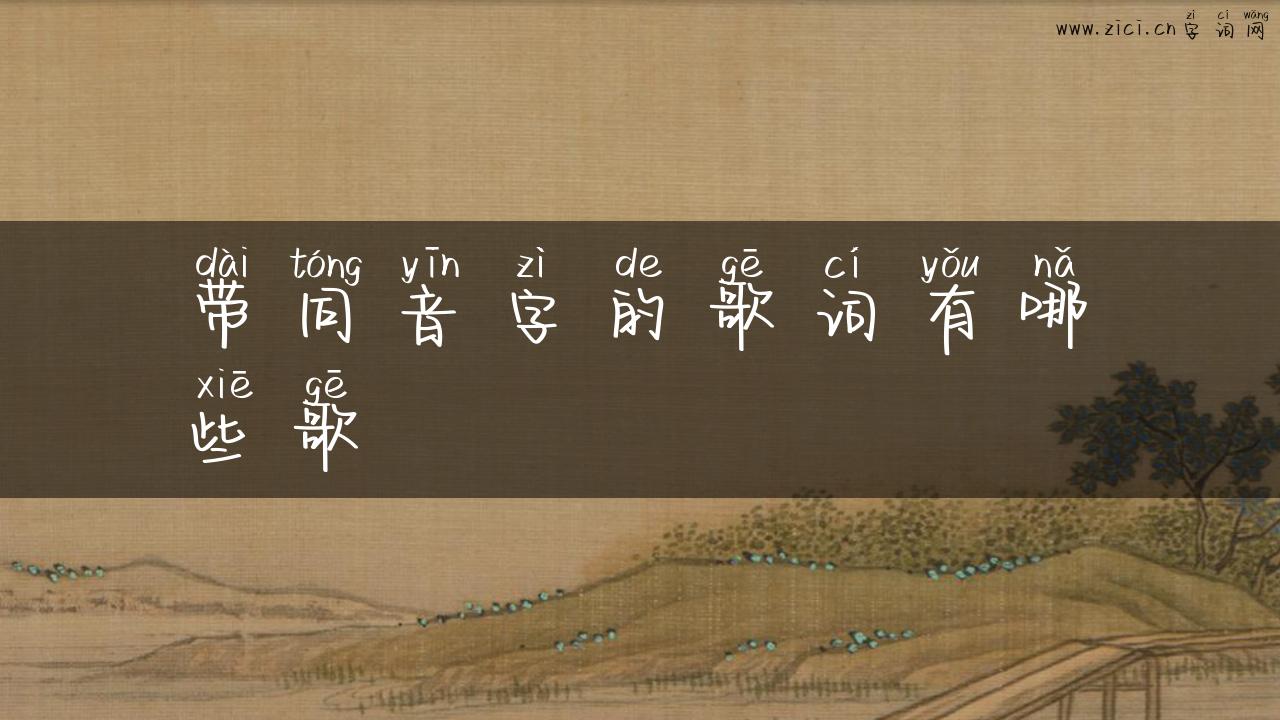 zì cí wǎng
www.zici.cn 字词网
dài tóng yīn zì de gē cí yǒu nǎ
带同音字的歌词有哪
xiē gē
些歌